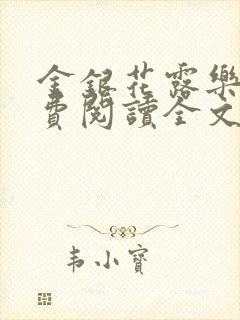 金銀花露樂
費閱讀全文
韦小寶